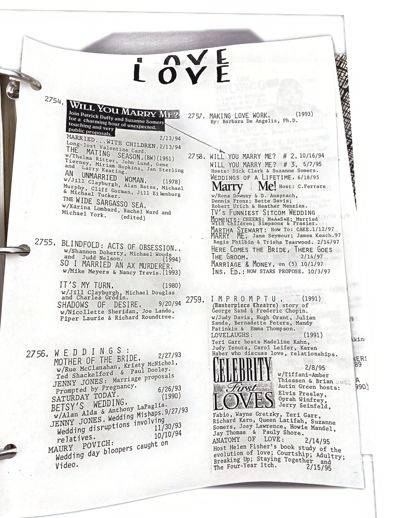 LOVE
LOVE
2754.
WILL YOU MARRY ME?
Join Patrick Duffy and Suzanne Somers
for a charming hour of unexpected,
touching and very
public proposals.
2/13/94
MARRIED...WITH CHILDREN. 2/13/94
Long-lost Valentine Card.
THE MATING SEASON. (BW)(1951)
w/Thelma Ritter, John Lund, Gene
Tierney, Miriam Hopkins, Jan Sterling
and Larry Keating.
AN UNMARRIED WOMAN. (1978)
w/Jill Clayburgh, Alan Bates, Michael
Murphy, Cliff Gorman, Jill Eikenburg
and Michael Tucker.
THE WIDE SARGASSO SEA.
w/Karina Lombard, Rachel Ward and
Michael York. (edited)
2755. BLINDFOLD: ACTS OF OBSESSION..
w/Shannon Doherty, Michael Woods
and Judd Nelson. (1994)
SO I MARRIED AN AX MURDERER.
w/Mike Meyers & Nancy Travis.(1993)
IT'S MY TURN. (1980)
w/Jill Clayburgh, Michael Douglas
and Charles Grodin.
SHADOWS OF DESIRE. 9/20/94
w/Nicollette Sheridan, Joe Lando,
Piper Laurie & Richard Roundtree.
2756. WEDDINGS:
MOTHER OF THE BRIDE. 2/27/93
w/Rue McClanahan, Kristy McNichol,
Ted Shackelford & Paul Dooley.
JENNY JONES: Marriage proposals
Prompted by Pregnancy. 6/26/93
SATURDAY TODAY. (1990)
BETSY'S WEDDING.
w/Alan Alda & Anthony LaPaglia.
JENNY JONES. Wedding Mishaps.9/27/93
Wedding disruptions involving
relatives. 11/30/93
MAURY POVICH: 10/10/94
Wedding day bloopers caught on
Video.
2757. MAKING LOVE WORK. (1993)
By: Barbara De Angelis, Ph.D.
2758. WILL YOU MARRY ME? # 2. 10/16/94
WILL YOU MARRY ME? # 3. 5/7/95
Hosts: Dick Clark & Suzanne Somers.
WEDDINGS OF A LIFETIME. 6/18/95
Marry Me! Host: C.Ferrare
w/Rona Downey & D. Ausprach,
Dennis Prone; Bette Davis;
Robert Urich & Heather Menzies.
TV'S FUNNIEST SITCOM WEDDING
MOMENTS: CHEERS; Married
With Children; Stepmoms & Frasier.
MARTHA STEWART: How To: CAKE.1/12/97
MARRY ME. Jane Seymour; James Keach.97
Regis Philbin & Trisha Yearwood. 2/14/97
HERE COMES THE BRIDE, THERE GOES
THE GROOM. 2/14/97
MARRIAGE & MONEY. on (5) 10/1/97
INS. ED.; HOW STARS PROPOSE. 10/3/97
2759. IMPROMPTU. (1991)
(Masterpiece Theatre) story of
George Sand & Frederic Chopin.
w/Judy Davis, Hugh Grant, Julian
Sands, Bernadette Peters, Mandy
Patinkin & Emma Thompson.
LOVELAUGHS. (1991)
Teri Garr hosts Madeline Kahn,
Judy Tenuta, Carol Leifer, Karen
Haber who discuss love, relationships.
CELEBRITY
First
LOVES
2/8/95
w/Tiffani-Amber
Thiessen & Brian
Autin Green hosts:
Elvis Presley,
Oprah Winfrey,
Jerry Seinfeld,
Fabio, Wayne Gretzky, Teri Garr,
Richard Karn, Queen Latifah, Suzanne
Somers, Joey Lawrence, Howie Mandel,
Jay Thomas & Pauly Shore.
ANATOMY OF LOVE: 2/14/95
Host Helen Fisher's book study of the
evolution of love; Courtship; Adultry;
Breaking Up; Staying Together and
The Four-Year Itch. 2/15/95